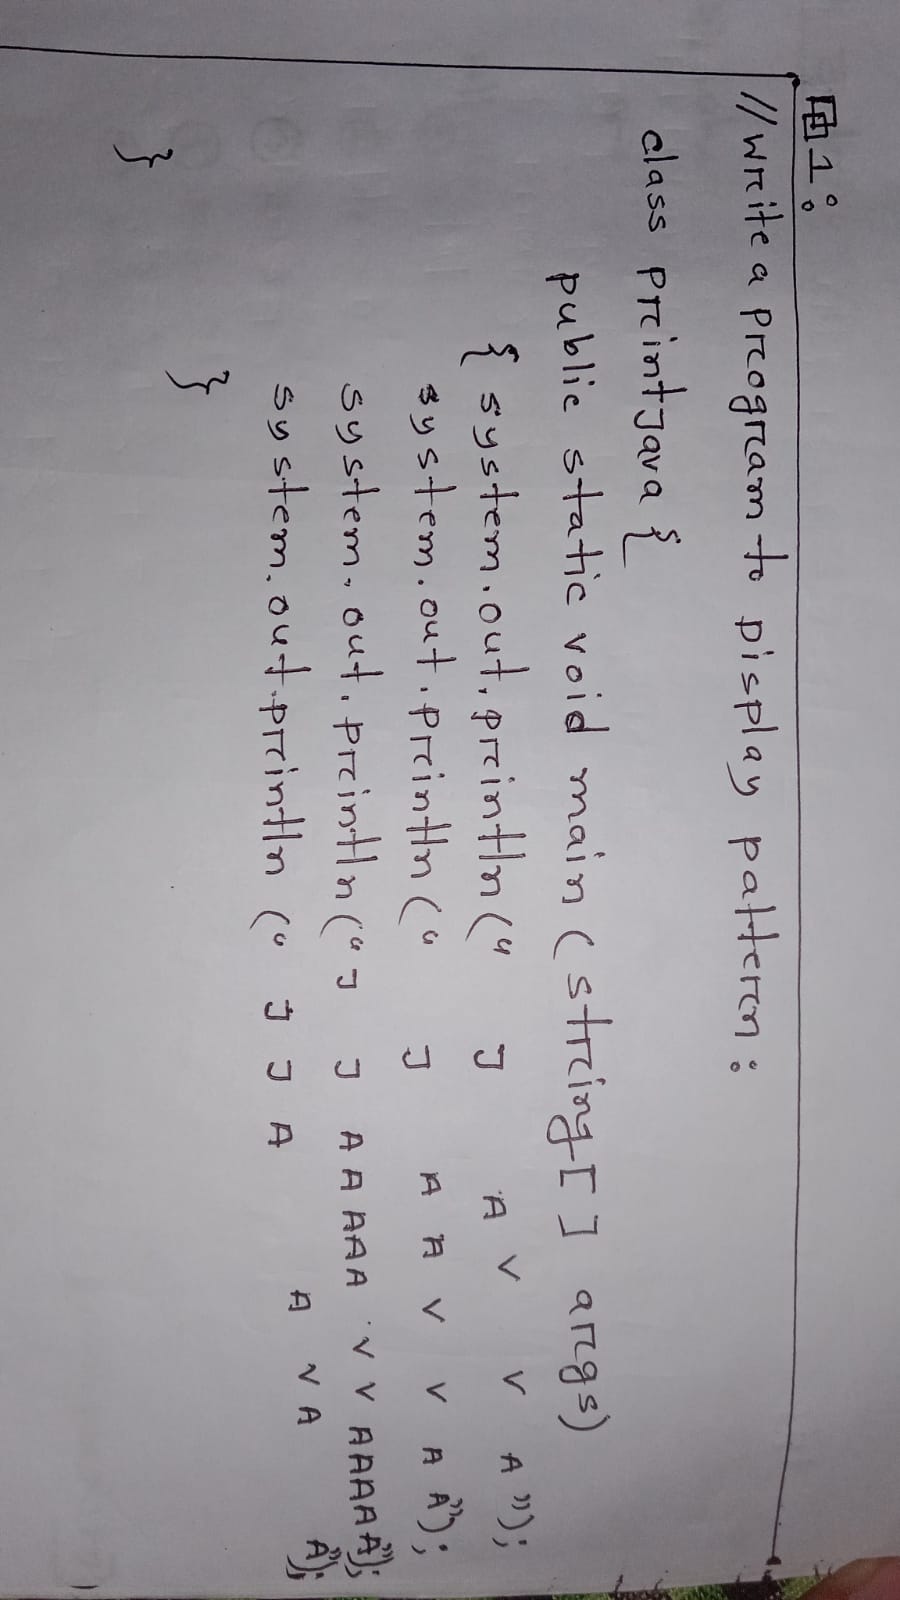 1:
//Write a program to Display pattern:
class printJava {
public static void main (string[] args)
{ system.out.println("   J    A  V   V  A");
system.out.println("   J    A A  V  V  A A");
system.out.println("J  J  AAAAA  V V  AAAAA");
system.out.println("  J J  A     A   V A     A");
}
}